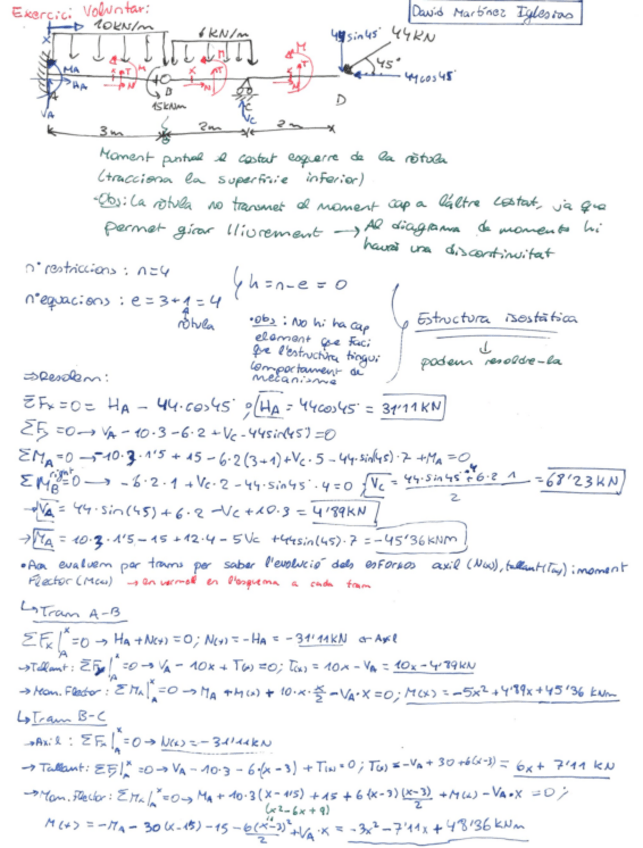 Exercici Voluntari:
David Martínez Iglesias
10KN/m
6KN/m
44 sin45
44KN
45°
44cos45
15KNm
3m
2m
2m
Moment puntual al costat esquerre de la ròtula
(tracciona la superfície inferior)
·Obs: La ròtula no transmet el moment cap a l'altre costat, ja que
permet girar lliurement → Al diagrama de moments hi
haurà una discontinuïtat
nº restriccions: n=4
nº equacions: e = 3+1 = 4
ròtula
h = n-e = 0
·obs: No hi ha cap
element que faci
que l'estructura tingui
comportament de
mecanisme
Estructura isostàtica
↓
podem resoldre-la
⇒ Resolem:
ΣFx = 0 = HA - 44·cos45°; HA = 44cos45° = 31'11 KN
ΣFy = 0 → VA - 10·3 - 6·2 + VC - 44sin(45) = 0
ΣMA = 0 → -10·3·1'5 + 15 - 6·2(3+1) + VC·5 - 44·sin(45)·7 + MA = 0
ΣMB right = 0 → -6·2·1 + VC·2 - 44·sin45°·4 = 0; VC = (44·sin45·4 + 6·2·1)/2 = 68'23 KN
→ VA = 44·sin(45) + 6·2 - VC + 10·3 = 4'89 KN
→ MA = 10·3·1'5 - 15 + 12·4 - 5VC + 44sin(45)·7 = -45'36 KNm
• Ara evaluem per trams per saber l'evolució dels esforços axil (N(x)), tallant (T(x)) i moment
flector (M(x)) → en vermell en l'esquema a cada tram
↳ Tram A-B
ΣFx|A^x = 0 → HA + N(x) = 0; N(x) = -HA = -31'11 KN ← Axil
→ Tallant: ΣFy|A^x = 0 → VA - 10x + T(x) = 0; T(x) = 10x - VA = 10x - 4'89 KN
→ Mom. Flector: ΣMx|A^x = 0 → MA + M(x) + 10·x·x/2 - VA·x = 0; M(x) = -5x² + 4'89x + 45'36 KNm
↳ Tram B-C
→ Axil: ΣFx|A^x = 0 → N(x) = -31'11 KN
→ Tallant: ΣFy|A^x = 0 → VA - 10·3 - 6·(x-3) + T(x) = 0; T(x) = -VA + 30 + 6(x-3) = 6x + 7'11 KN
→ Mom. Flector: ΣMx|A^x = 0 → MA + 10·3(x-1'5) + 15 + 6(x-3)(x-3)/2 + M(x) - VA·x = 0;
(x²-6x+9)
M(x) = -MA - 30(x-1'5) - 15 - 6(x-3)²/2 + VA·x = -3x² - 7'11x + 48'36 KNm